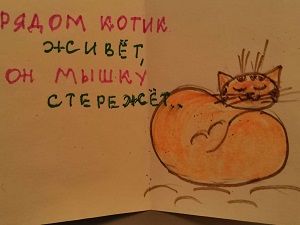 РЯДОМ КОТИК
ЖИВЁТ,
ОН МЫШКУ
СТЕРЕЖЁТ..